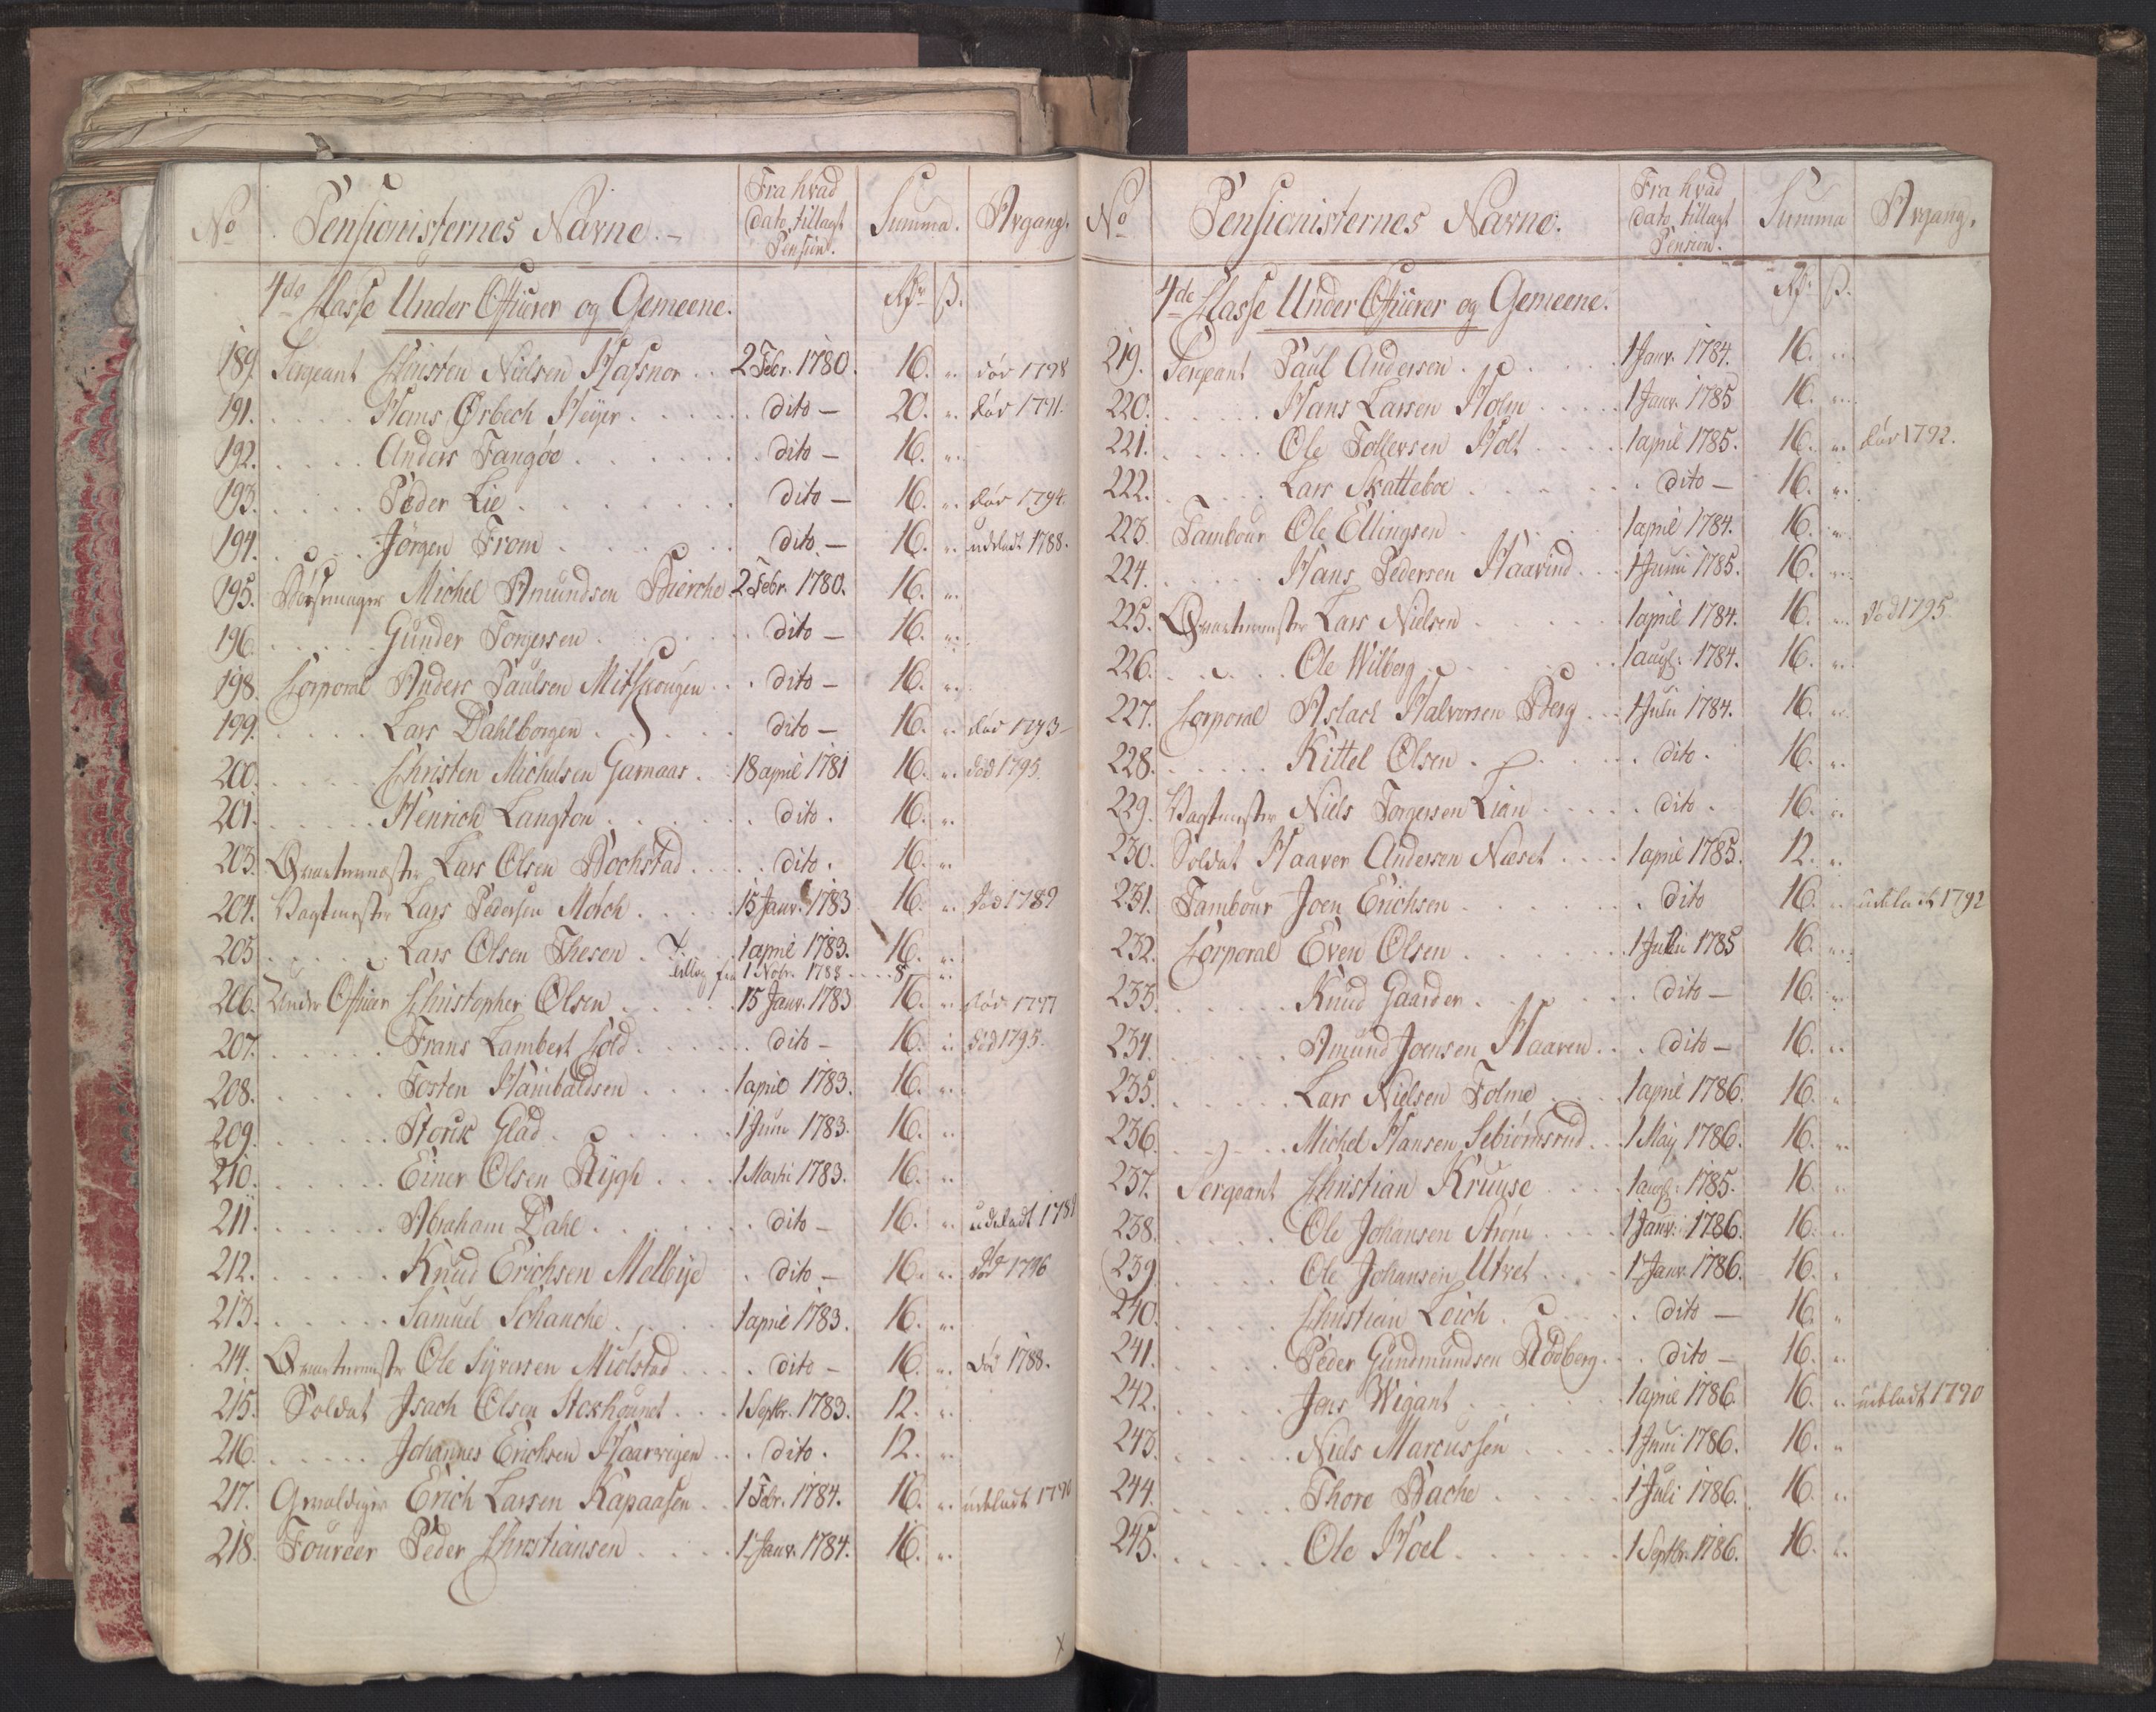 No Pensionisternes Navne.- Fra hvad dato tillagt Pension. Summa. Afgang.
4de Classe Under Officerer og Gemeene. Rdr ß.
189. Sergeant Christen Nielsen Hassnor .. 2 Febr. 1780. 16. " død 1798
191. .... Hans Ørbech Heyer ..... dito - 20. " død 1791.
192. .... Anders Fangøe ...... dito - 16. "
193. .... Peder Lie ....... dito - 16. " død 1794.
194. .... Jørgen From ..... dito - 16. " udeladt 1788.
195. Bøssemager Michel Amundsen Bierche. 2 Febr. 1780. 16. "
196. ..... Gunder Torgersen ..... dito - 16. "
198. Corporal Anders Paulsen Mitskougen .. dito - 16. "
199. .... Lars Dahlborgen ..... dito - 16. " død 1793-
200. .... Christen Michelsen Garnaas .. 18 april 1781 16. " død 1795.
201. ..... Henrich Langton ...... dito. 16. "
203. Qvarteermester Lars Olsen Bochstad .... dito. 16. "
204. Vagtmester Lars Pedersen Mørch .... 15 Janv. 1783 16. " død 1789
205. .... Lars Olsen Thesen . 1 april 1783. 16. "
Tillag fra 1 Nobr. 1788 .... 8 "
206. Under Officer Christopher Olsen ..... 15 Janv. 1783 16. " død 1797
207. ..... Frans Lambert Cold ..... dito - 16. " død 1795.
208. .... Tosten Hanibaldsen .... 1 april 1783. 16. "
209. ..... Storck Glad ...... 1 Juni 1783. 16. "
210. ..... Einer Olsen Rygh .... 1 Martii 1783. 16. "
211. ..... Abraham Dahl ...... dito - 16. " udeladt 1789
212. ..... Knud Erichsen Melbye . dito - 16. " død 1796
213. ..... Samuel Schanche .... 1 april 1783. 16. "
214. Qvarteermester Ole Syversen Miølstad ... dito - 16. " død 1788.
215. Soldat Isach Olsen Stokhounet ... 1 Septbr. 1783. 12. "
216. ..... Johannes Erichsen Haarvigen .. dito. 12. "
217. Gevaldiger Erich Larsen Kapaasen .. 1 Febr. 1784. 16. " udeladt 1790
218. Foureer Peder Christiansen .... 1 Janv. 1784. 16. "
x
No Pensionisternes Navne. Fra hvad dato tillagt Pension. Summa Afgang.
4de Classe Under Officerer og Gemeene. Rdr ß.
219. Sergeant Paul Andersen ..... 1 Janv. 1784. 16. "
220. ..... Hans Larsen Holm .... 1 Janv. 1785 16. "
221. ..... Ole Tollersen Holt .... 1 april 1785. 16. " død 1792.
222. ..... Lars Skatteboe ...... dito - 16. "
223. Tambour Ole Ellingsen ..... 1 april 1784. 16. "
224. ..... Hans Pedersen Haavind .. 1 Junii 1785. 16. "
225. Qvarteermester Lars Nielsen ..... 1 april 1784. 16. " død 1795.
226. .... Ole Wilberg ...... 1 augs: 1784. 16. "
227. Corporal Aslach Halvorsen Berg ... 1 Julii 1784. 16. "
228. ..... Kittel Olsen ...... dito. 16. "
229. Vagtmester Niels Torgersen Lian ..... dito. 16. "
230. Soldat Haaver Andersen Næset .... 1 april 1785. 12. "
231. Tambour Joen Erichsen ...... dito 16. " udeladt 1792
232. Corporal Even Olsen ...... 1 Julii 1785 16. "
233. ..... Knud Gaarder ...... dito - 16. "
234. ..... Amund Joensen Haaven .. dito - 16. "
235. ..... Lars Nielsen Tolmo ... 1 april 1786. 16. "
236. ..... Michel Hansen Sebiørnsrud .. 1 May 1786. 16. "
237. Sergeant Christian Kruuse .... 1 augs: 1785. 16. "
238. .... Ole Johansen Strøm .... 1 Janv. 1786. 16. "
239 .... Ole Johansen Utvet .... 1 Janv. 1786. 16. "
240. .... Christian Leich ...... dito - 16. "
241. .... Peder Gundmundsen Rødberg .. dito - 16. "
242. .... Jens Wigant ..... 1 april 1786. 16. " udeladt 1790
243. ..... Niels Marcussen .... 1 Juni 1786. 16. "
244. ..... Thore Bache ..... 1 Juli 1786. 16. "
245. ..... Ole Hoel ...... 1 Septbr. 1786. 16. "